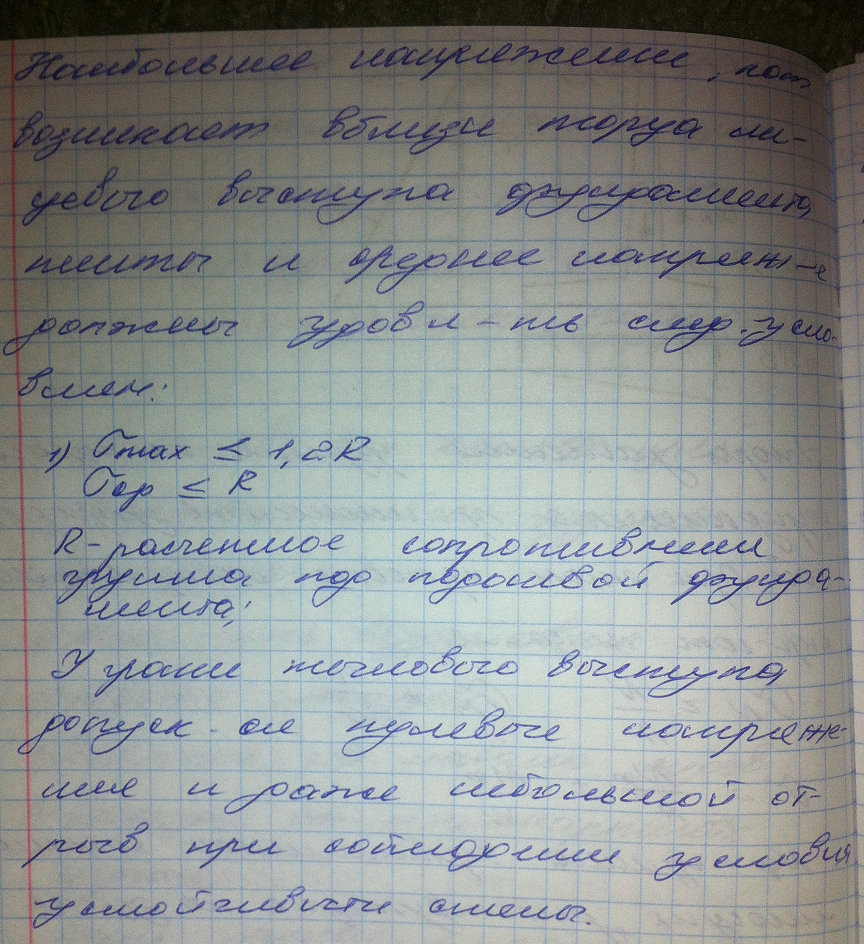 Наибольшее напряжение, кот
возникает вблизи торца ли-
цевого выступа фундамента,
плиты и среднее напряж-е
должны удовл-ть след. усло-
виям:
1) σmax ≤ 1,2R
σср ≤ R
R - расчетное сопротивление
грунта под подошвой фунда-
мента;
У грани тылового выступа
допуск-ся нулевые напряже-
ние и даже небольшой от-
рыв при соблюдении условия
устойчивости стены.